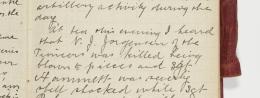 artillery activity during the
day.
At tea this evening I heard
that V. J. Jorgensen of the
Pioneers was killed being
blown to pieces and Sgt
Hammett was severely
shell shocked while Sgt